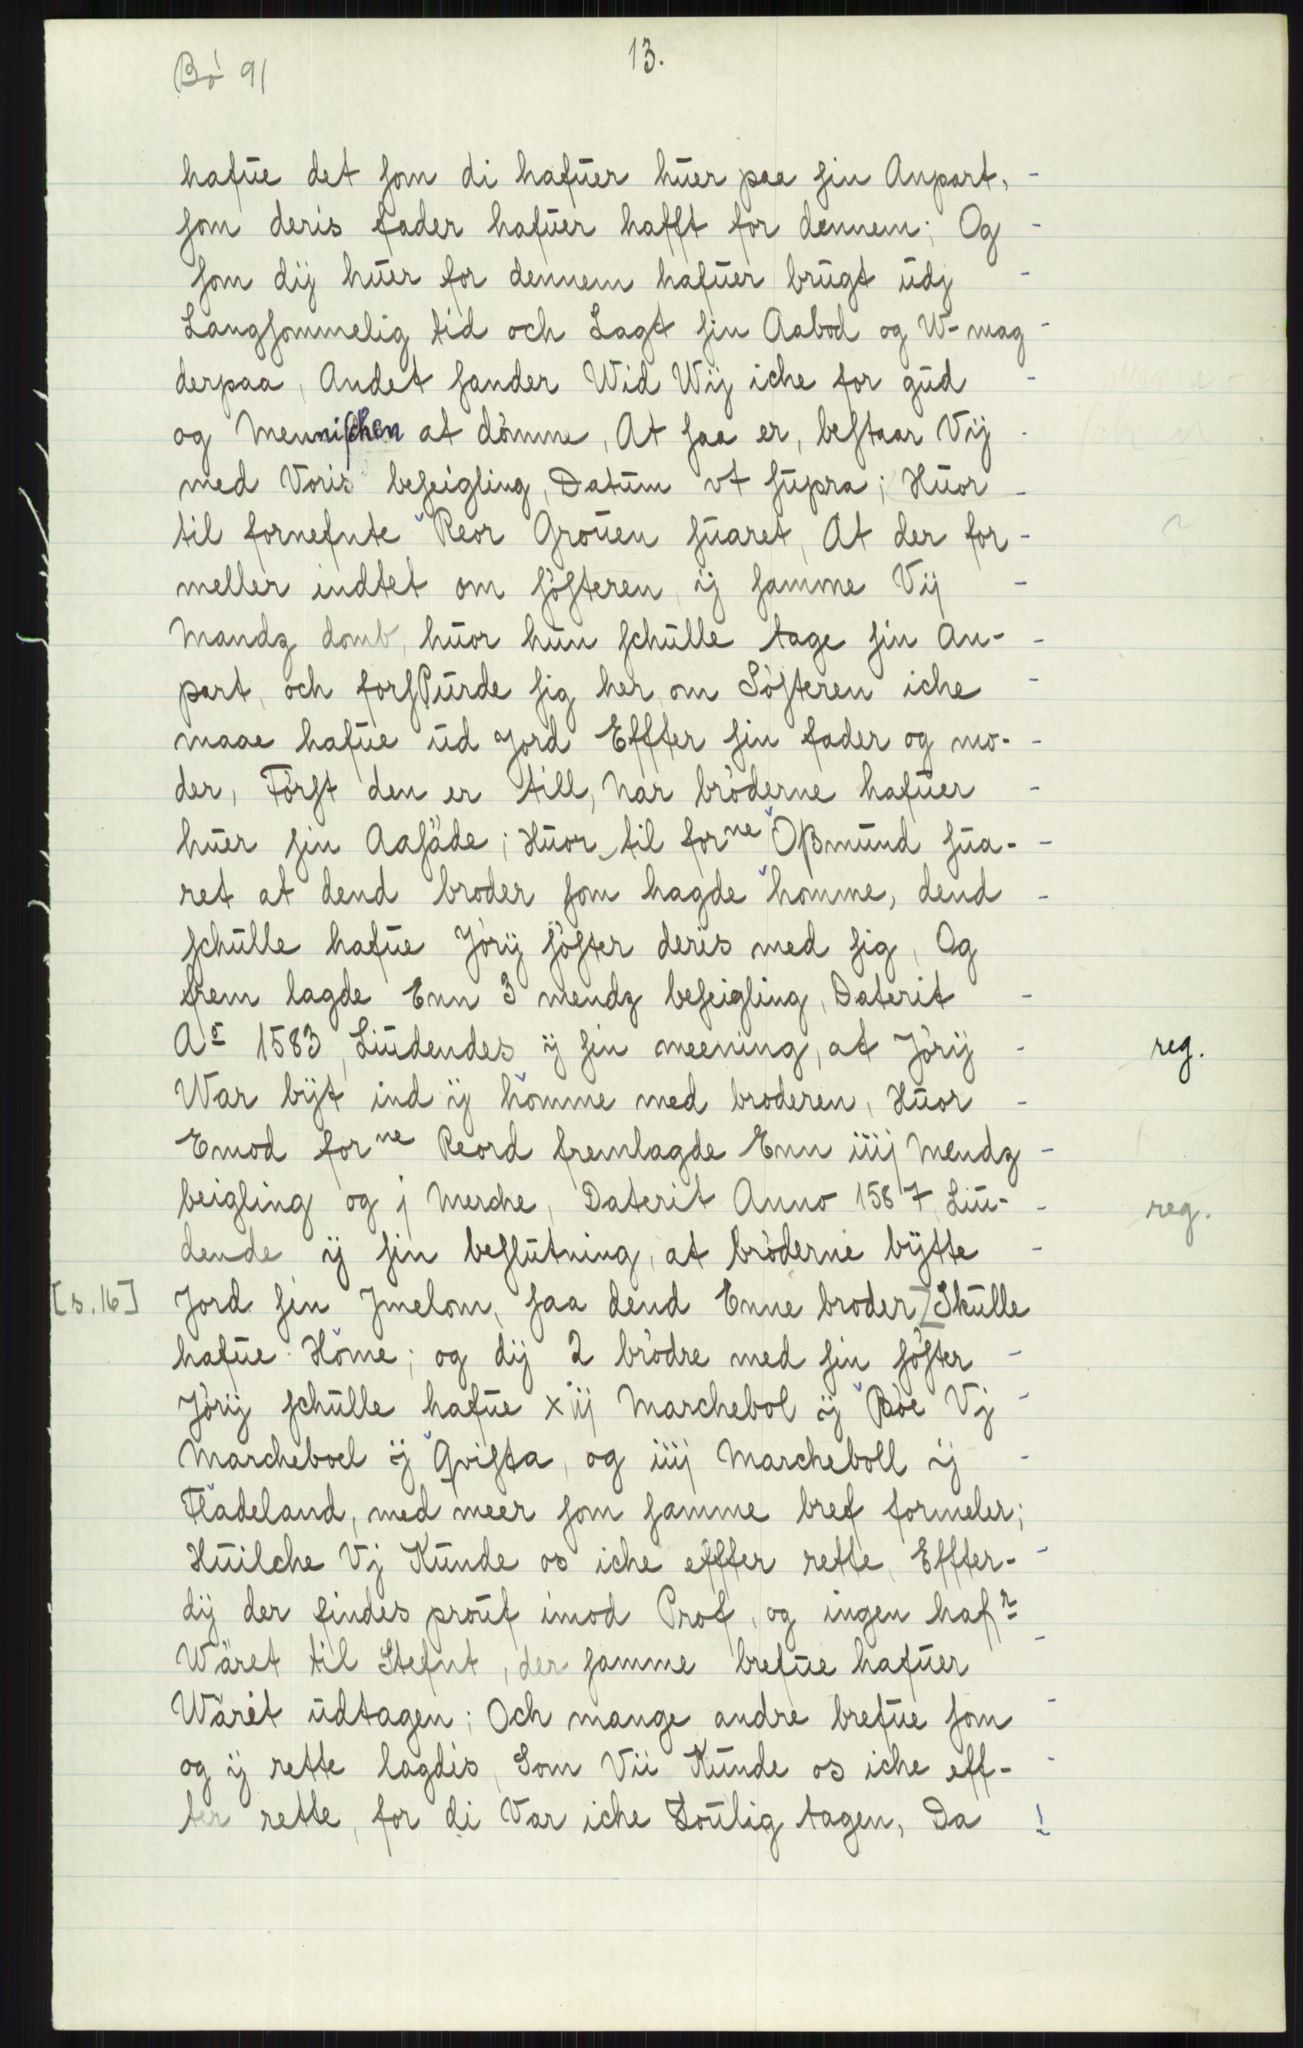 Bö 91
13.
hafue det som di hafuer huer paa sin Anpart,
som deris fader hafuer hafft for dennem; Og
som dij huer for dennem hafuer brugt udj
Langsommelig tid och Lagt sin Aabod og W-mag
derpaa, Andet sander Wid Wij iche for gud
og Mennischen at dömme, At saa er, bestaar Vij
med Voris beseigling, Datum vt supra; Huor
til fornefnte Reor Grouen suaret, At der for
meller indtet om söfteren ij samme Vij
Mandz domb, huor hun schulle tage sin An-
part, och forsPurde sig her om Söfteren iche
maae hafue ud Jord Effter sin fader og mo-
der, Först den er till, Nar bröderne hafuer
huer sin Aasäde; Huor til forne Oßmund sua-
ret at dend broder som hagde homme, dend
schulle hafue Jörij söfter deris med sig, Og
frem lagde Enn 3 mendz beseigling, Daterit
Ao 1583, Liudendes ij sin meening, at Jörij
reg.
War bijt ind ij homme med broderen, Huor
Emod forne Reord fremlagde Enn iiij Mendz
beigling og j Merche, Daterit Anno 1587 Liu-
reg.
dende ij sin beslutning, at bröderne bijtte
[s. 16]
Jord sin Jmelom, saa dend Enne broder [Skulle
hafue Home; og dij 2 brödre med sin söfter
Jörij schulle hafue xiij Marchebol ij Böe Vj
Marcheboel ij Qvista, og iiij Marcheboll ij
Fladeland, med meer som samme bref formeler;
Huilche Vj Kunde os iche effter rette, Effter-
dij der findes prouf imod Prof, og ingen hafr
Wäret til Stefnt, der samme brefue hafuer
Wäret udtagen; Och mange andre brefue som
og ij rette lagdis, Som Vii Kunde os iche eff-
ter rette, for di Var iche Loulig tagen, Da
!